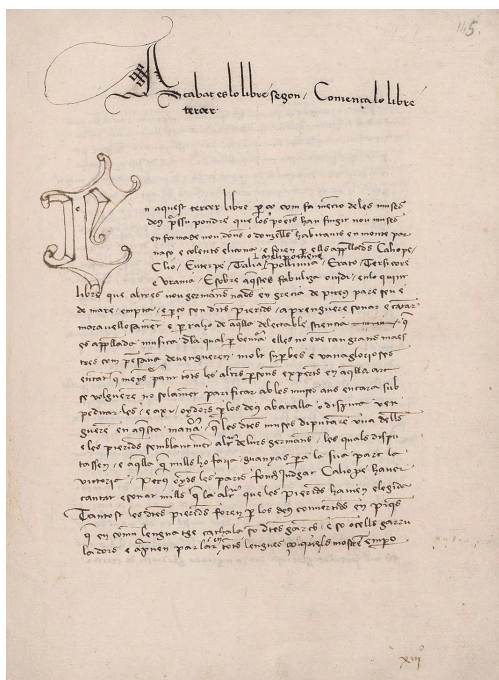 145.
Acabat es lo libre segon / Comença lo libre
tercer.
En aquest tercer libre p ço com fa mencio de les muses
deu pssupondre que los poets han fingit nou muses
en forma de nou dons o donzells habitants en monte par
naso e colents elicona e foren p ells appllads Caliope /
Melpomene
Clio / Euterpe / Talia / Pollimia / Erato / Tersicore
e Urania / E sobre aqstes fabuliza ovidi / en lo quint
libre que altres nou germans nads en grecia de pireu pare seu e
de mare / empta / e p ço son dits pierids / aprengueren sonar e cantar
maravellosamet e p raho de aqlla delectable sciencia q
es appllada musica / dla qual elles no ere tan grans maes
tres com pensava devengueren / molt supbes e vanaglorioses
entant q menys pant tots les altrs psons expts en aqlla art
se volguere no solamet parificar ab les muses ans encara sub
peditar les / e axi / p los deus abatalla o disputa ven
guere en aqsta mana / q les dites muses diputare una dells
e les pierids semblantmet alt de lurs germans / les quals dispu
tassen / e aqlla q mills ho faria / guanyas p la sua part la
victoria / Petu oyds les parts fonch jutgat Caliope haver
cantat e sonat mills q la alt que les pierids havien elegida
Tantost les dits pierids foren p los deus convertids en pigs
q en comu lenguatge cathala so dites garces / e so ocells garru
ladors e apnen parlar en tots lengues ço quels mostre empo
xiij